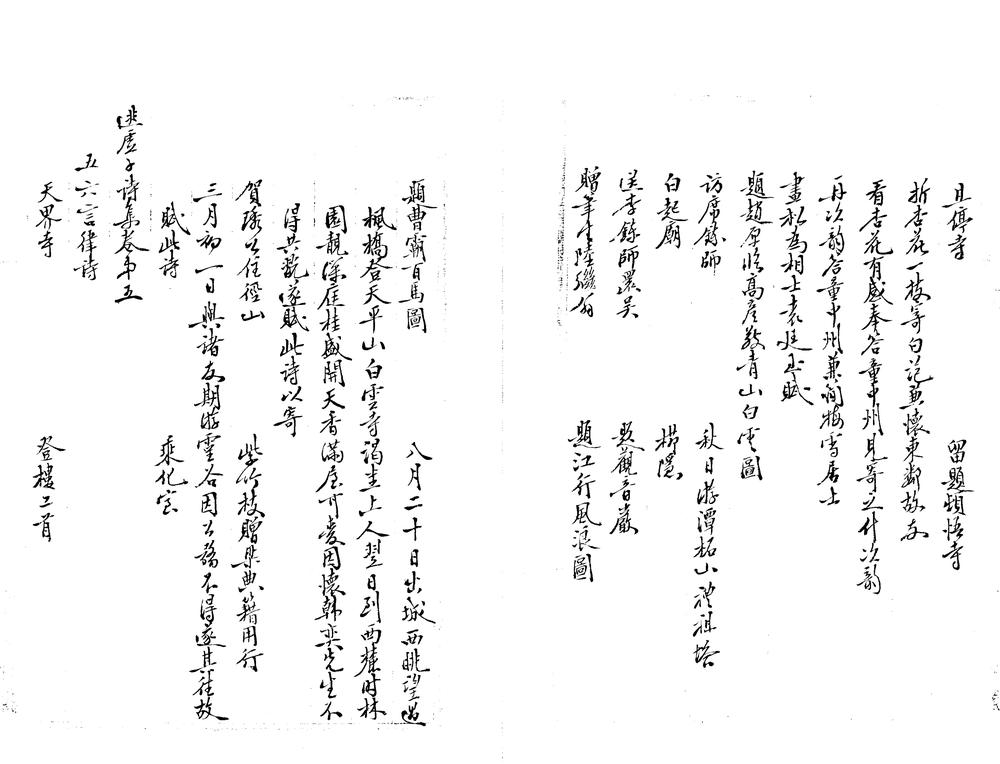 且停寺　留題頓悟寺
折杏花一枝寄句范兼懷東鄰故友
看杏花有感奉答童中州見寄之什次韵
再次韵答童中州兼簡梅雪居士
畫松為相士袁廷玉賦
題趙原臨高彦敬青山白雲圖
訪席鍊師　秋日游潭柘山禮祖塔
白起廟　櫛隱
送李鍊師還吴　題觀音巖
贈筆生陸繼翁　題江行風浪圖
題曹霸百馬圖　八月二十日出城西眺望過
楓橋登天平山白雲寺謁圭上人翌日到西麓時林
園靚深崖桂盛開天香滿屋可愛因懷韓奕先生不
得共翫遂賦此詩以寄
賀琇公住徑山　紫竹杖贈梁典籍用行
三月初一日與諸友期游靈谷因公務不得遂其往故
賦此詩　乘化室
逃虛子詩集卷第五
五六言律詩
天界寺　登樓二首